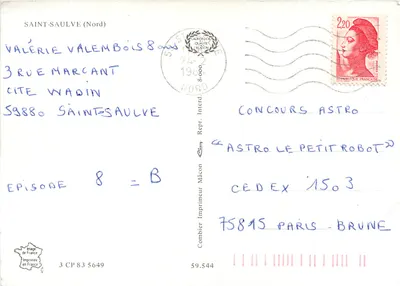 SAINT-SAULVE (Nord)
VALÉRIE VALEMBOIS 8 ans
3 RUE MARCANT
CITE WADIN
59880 SAINT SAULVE
EPISODE 8 = B
3 CP 83 5649
59.544
Combier Imprimeur Mâcon
Repr. Interd.
2,20
CONCOURS ASTRO
"ASTRO LE PETIT ROBOT"
CEDEX 1503
75815 PARIS-BRUNE